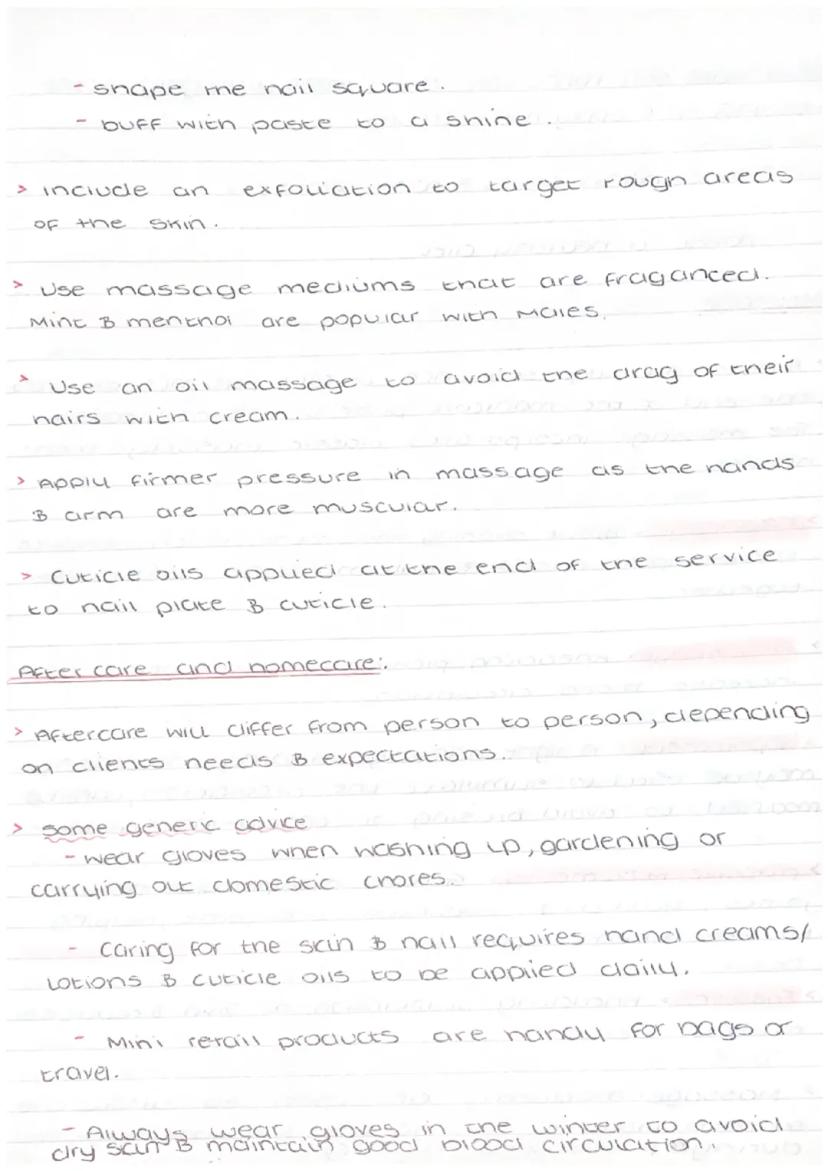 - shape the nail square.
- buff with paste to a shine.
> Include an exfoliation to target rough areas
of the skin.
> Use massage mediums that are fraganced.
Mint & menthol are popular with Males.
> Use an oil massage to avoid the drag of their
hairs with cream.
> Apply firmer pressure in massage as the hands
& arm are more muscular.
> Cuticle oils applied at the end of the service
to nail plate & cuticle.
After care and homecare:
> Aftercare will differ from person to person, depending
on clients needs & expectations.
> some generic advice
- wear gloves when washing up, gardening or
carrying out domestic chores.
- Caring for the skin & nail requires hand creams/
Lotions & cuticle oils to be applied daily.
- Mini retail products are handy for bags or
travel.
- Always wear gloves in the winter to avoid
dry skin & maintain good blood circulation.